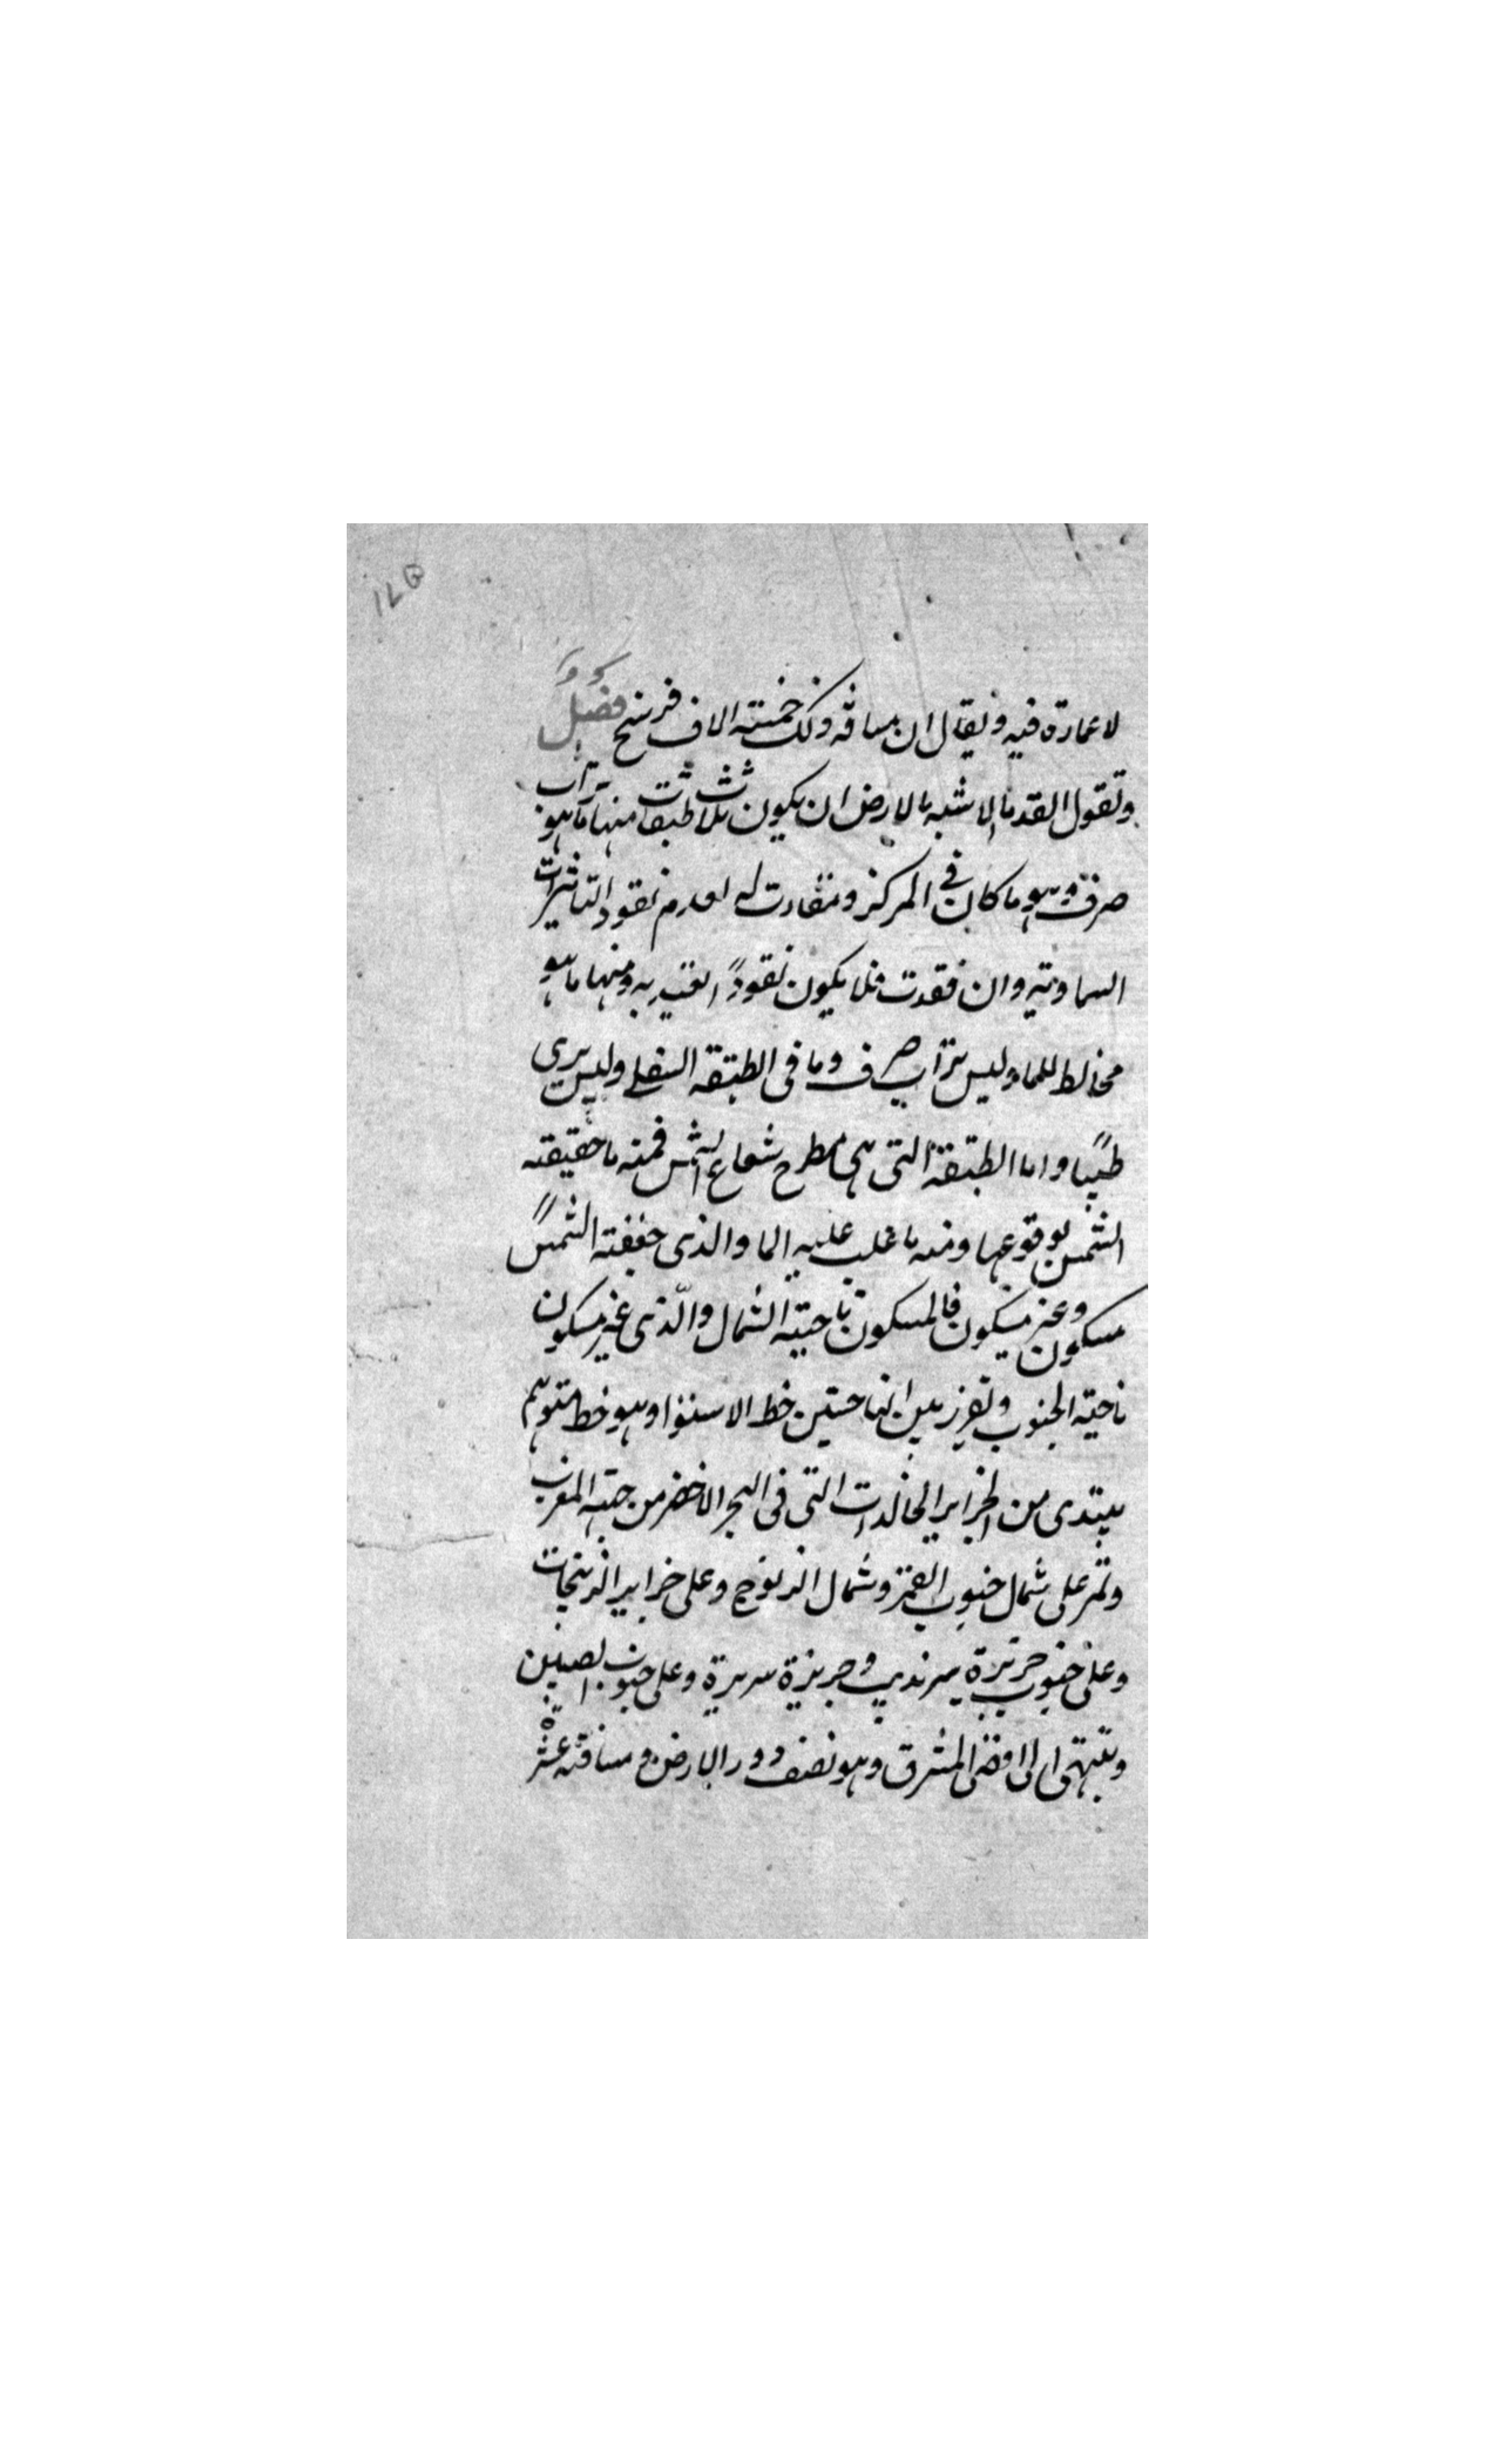 ١٧٥
لا عمارة فيه ويقال ان مسافة ذلك خمسته الاف فرسخ فصل
وتقول القدما الاشبه بالارض ان يكون ثلاث طبقات منها ما هو تراب
صرف وهو ما كان في المركز ومقارت له لعدم نقود التاثيرات
السماويه وان فقدت فلا يكون نقودًا يعتد به ومنها ما هو
مخالط للما وليس تراب صرف وما في الطبقة السفلى وليس يرى
طيبا واما الطبقة التى هى مطرح شعاع الشمس فمنه ما حقيقته
الشمس بوقوعها ومنه ما غلب عليه الما والذى جففته الشمس
مسكون وغير مسكون فالمسكون ناحيته الشمال والّذى غير مسكون
ناحية الجنوب وتفرز بين الناحيتين خط الاستوا وهو خط متوهم
يبتدى من الجزاير الخالدات التى فى البحر الاخضر من جهة المغرب
وتمر على شمال جنوب القمر وشمال الزنوج وعلى جزاير الزنجات
وعلى جنوب جزيرة سرنديب وجزيرة سريرة وعلى جنوب الصين
وينتهى الى اقصى المشرق وهو نصف دور الارض ومسافته عشر